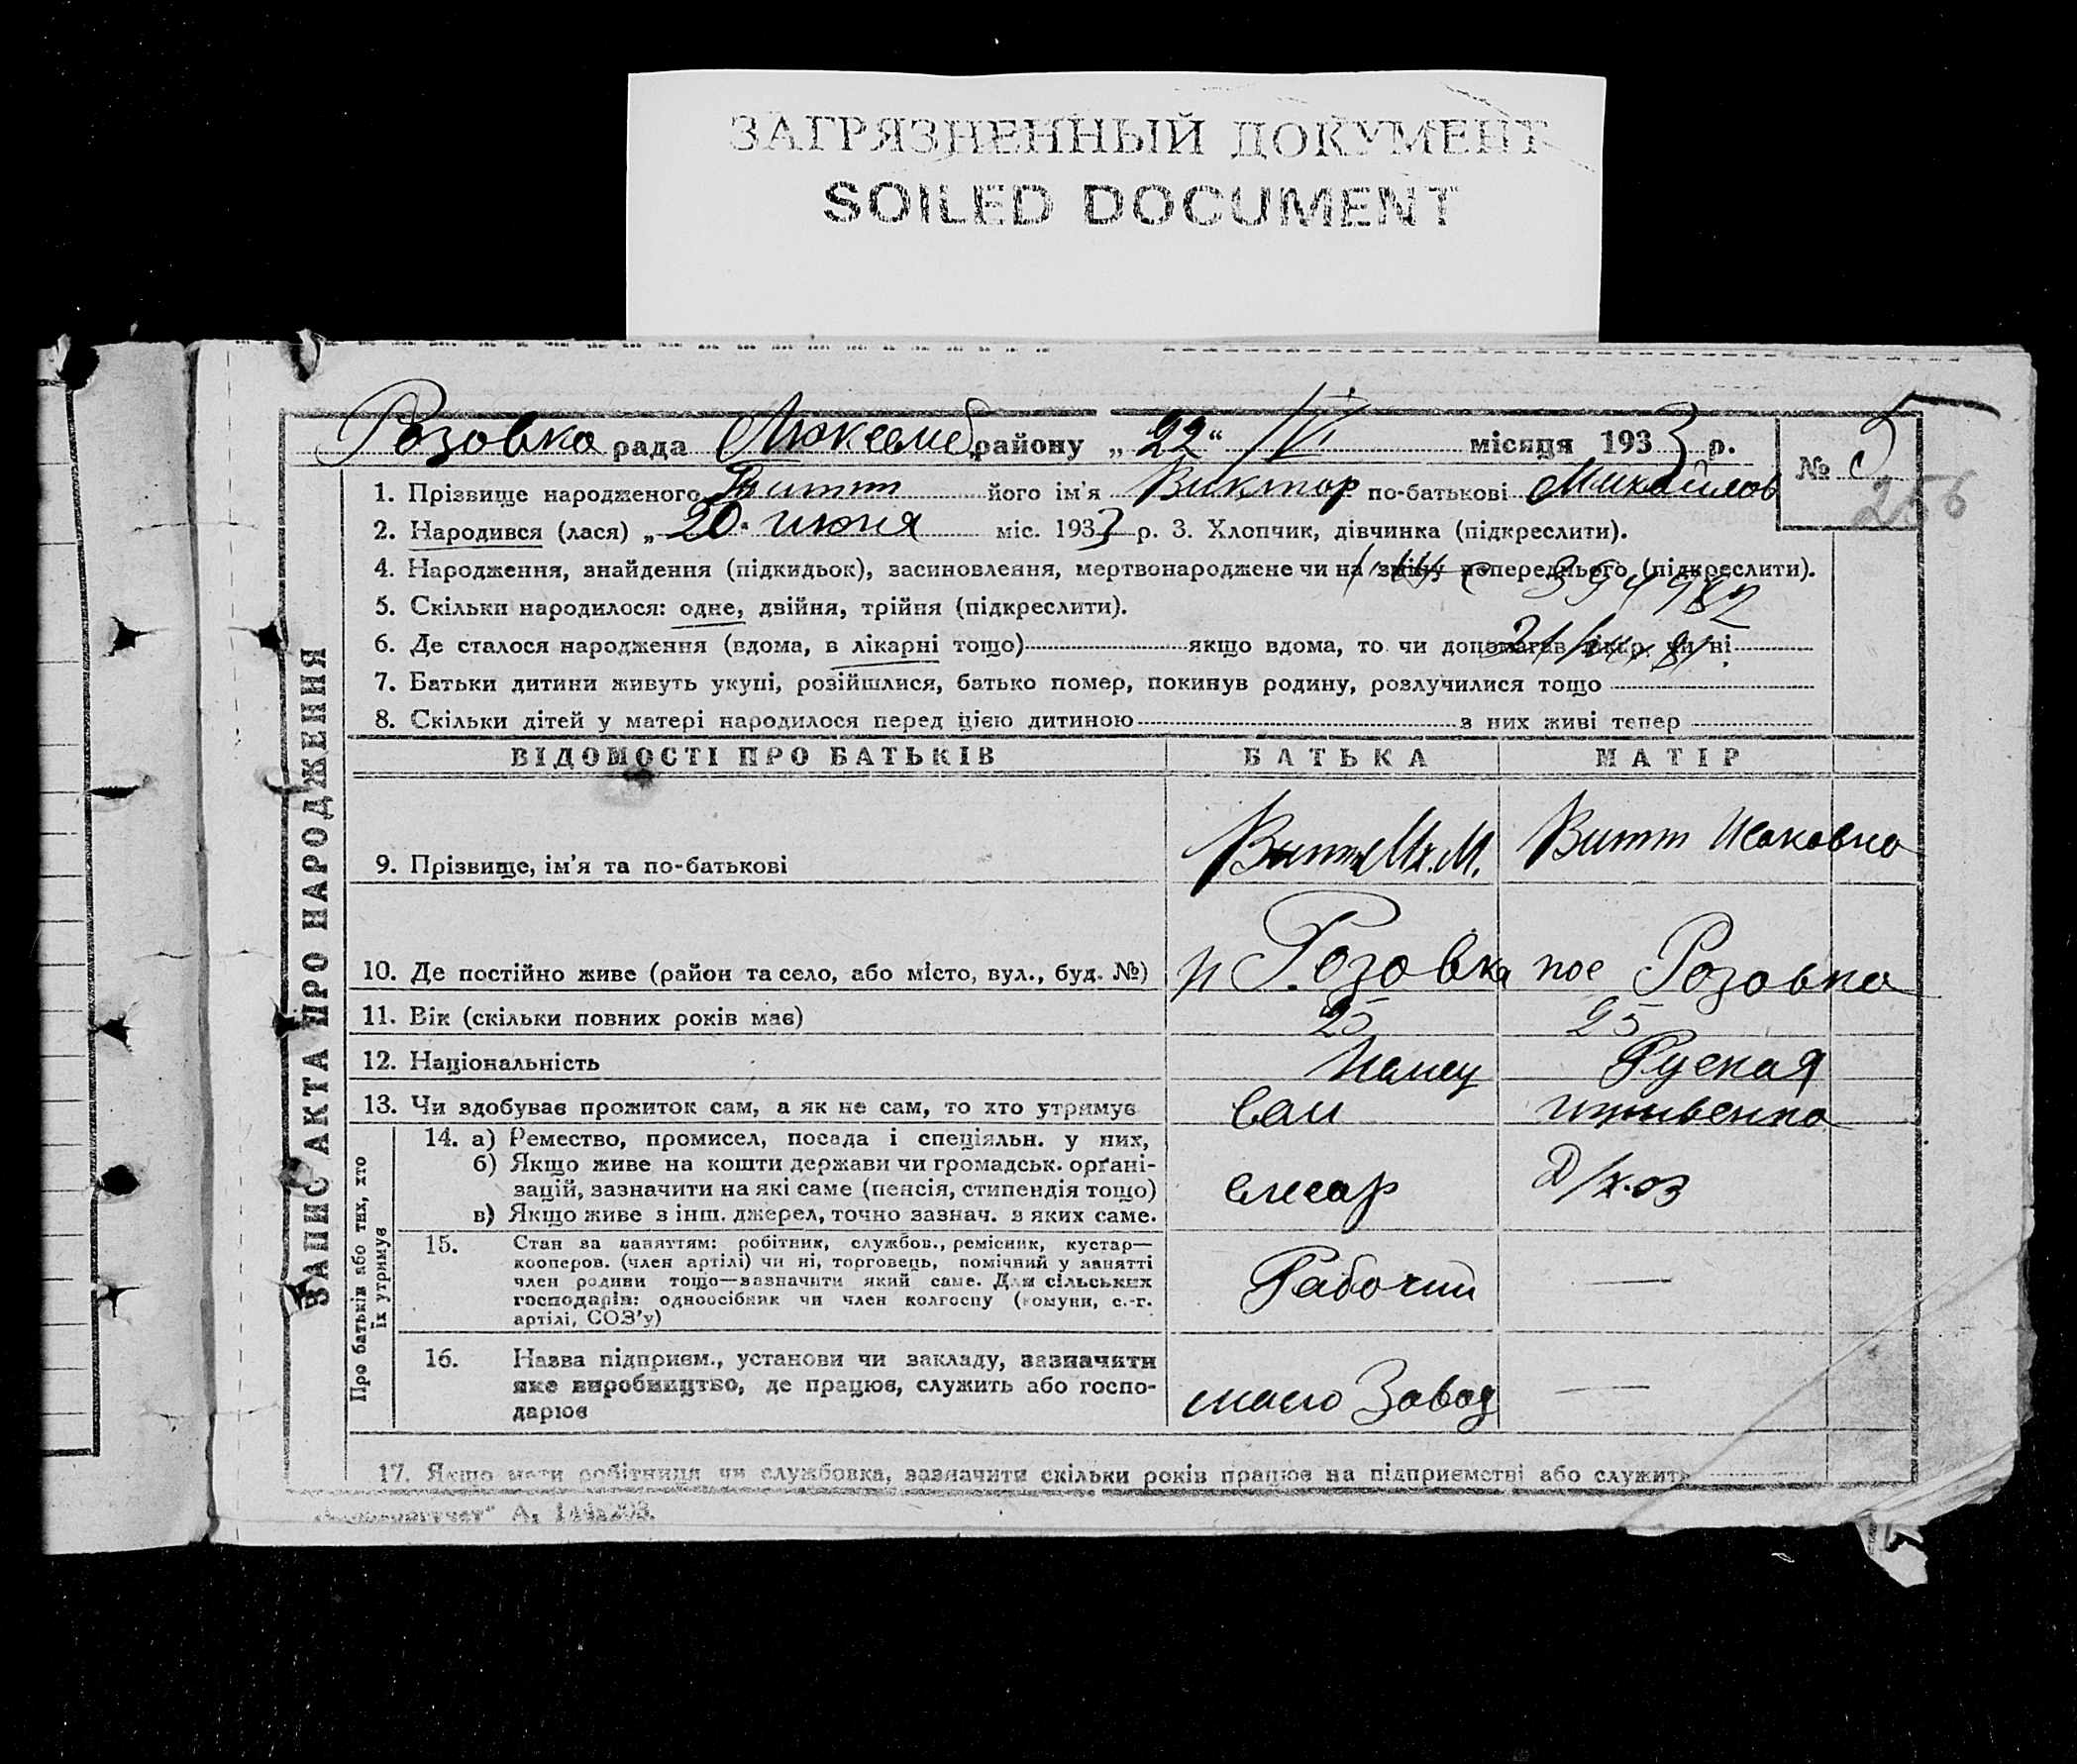 ЗАГРЯЗНЕННЫЙ ДОКУМЕНТ
SOILED DOCUMENT
Розовка рада району „22“ VI місяця 1933 р.
№ 5
256
1. Прізвище народженого Витт його ім'я Виктор по-батькові Михайлов
2. Народився (лася) „20“ июня міс. 1933 р. 3. Хлопчик, дівчинка (підкреслити).
4. Народження, знайдення (підкидьок), засиновлення, мертвонароджене чи на зміну попереднього (підкреслити).
5. Скільки народилося: одне, двійня, трійня (підкреслити).
6. Де сталося народження (вдома, в лікарні тощо) якщо вдома, то чи допомагав лікар чи ні
7. Батьки дитини живуть укупі, розійшлися, батько помер, покинув родину, розлучилися тощо
8. Скільки дітей у матері народилося перед цією дитиною з них живі тепер
ЗАПИС АКТА ПРО НАРОДЖЕННЯ
ВІДОМОСТІ ПРО БАТЬКІВ БАТЬКА МАТІР
9. Прізвище, ім'я та по-батькові Витт Мх. М. Витт Исаковна
10. Де постійно живе (район та село, або місто, вул., буд. №) п Розовка пос Розовка
11. Вік (скільки повних років має) 25 25
12. Національність Немец Руская
13. Чи здобуває прожиток сам, а як не сам, то хто утримує Сам иждивенка
Про батьків або тих, хто
їх утримує
14. а) Ремество, промисел, посада і спеціяльн. у них,
б) Якщо живе на кошти держави чи громадськ. орґані-
зацій, зазначити на які саме (пенсія, стипендія тощо) слесар Д/хоз
в) Якщо живе з інш. джерел, точно зазнач. з яких саме.
15. Стан за заняттям: робітник, службов., ремісник, кустар—
кооперов. (член артілі) чи ні, торговець, помічний у занятті
член родини тощо—зазначити який саме. Для сільських
господарів: одноосібник чи член колгоспу (комуни, с.-г.
артілі, СОЗ'у) Рабочий —
16. Назва підприєм., установи чи закладу, зазначити
яке виробництво, де працює, служить або госпо-
дарює масло Завод —
17. Якщо мати робітниця чи службовка, зазначити скільки років працює на підприємстві або служить